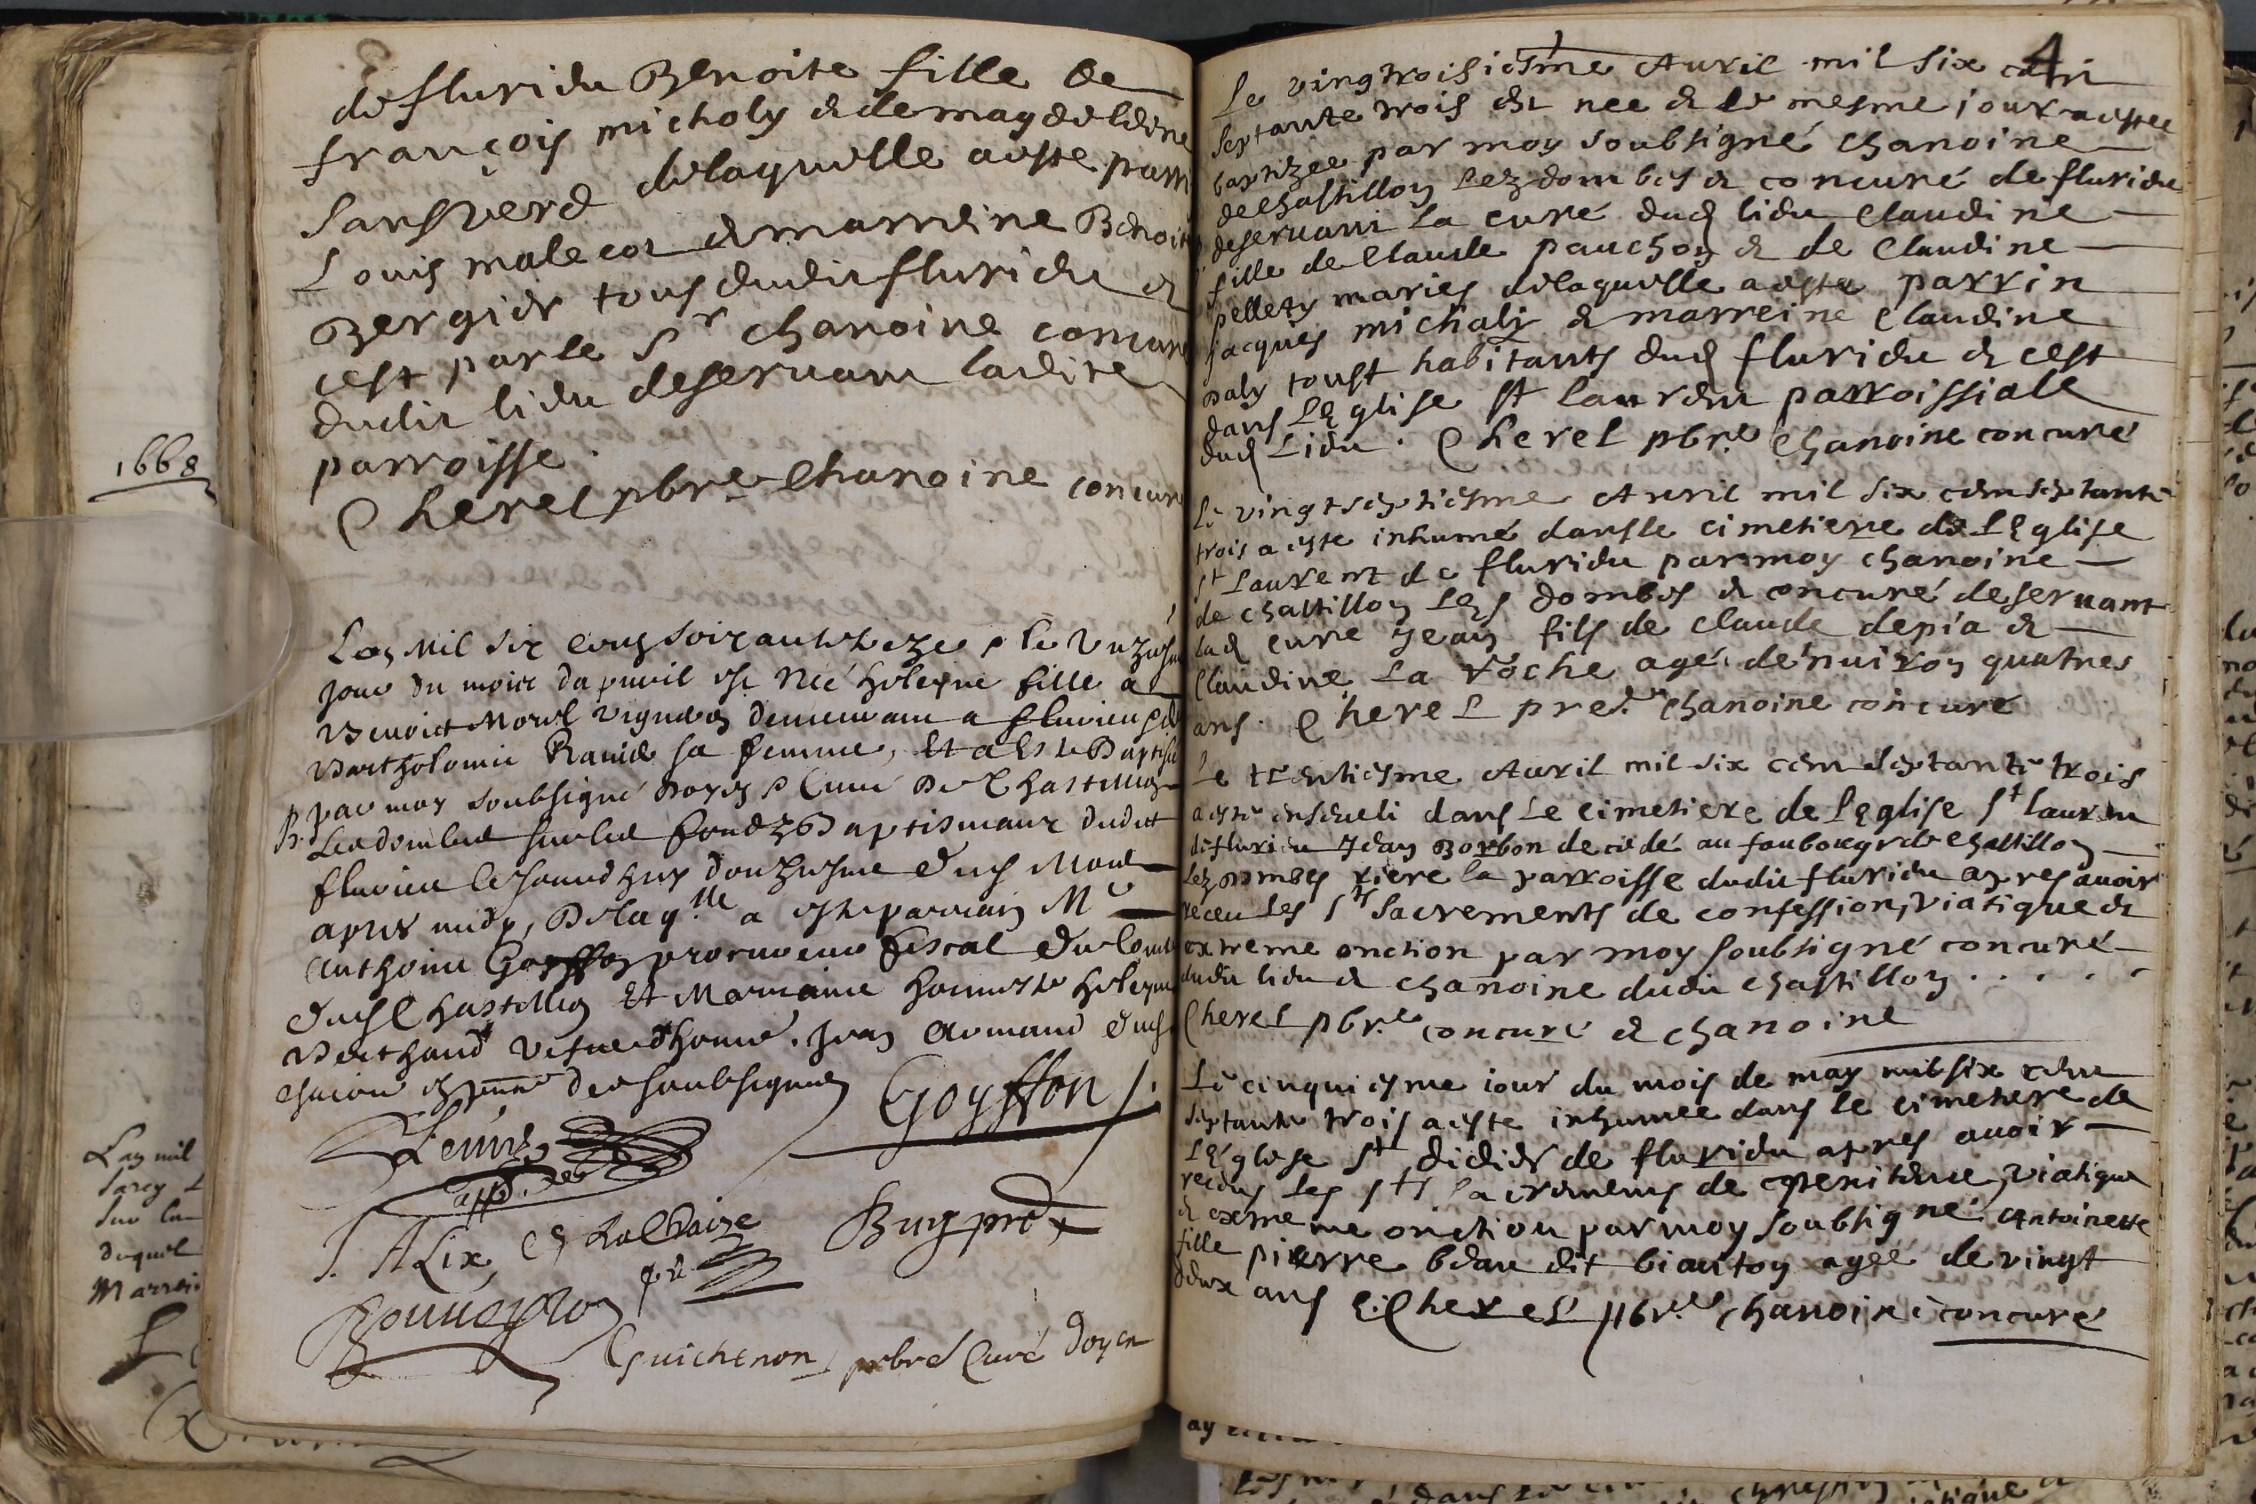 de flurieu Benoite fille de
françois micholy & de magdeleine
Sansverd de laquelle a esté parri
Louis malecot & marreine Benoit
Bergier tous dudit flurieu &
cest par le Sr chanoine concuré
dudit lieu deservant ladite
parroisse.
Cherel pbre Chanoine concuré
1668
Lan Mil six cens soixante treze & le unziesme
jour du mois dapvril est Née heleyne fille a
Benoict Morel vigneron demeurant a flurieu &
Bartholomie Ravide sa femme, Et a esté Baptisée
B. par moy soubsigné Doyen & Curé De Chastillon
Les dombes sur les fondz Baptismaux dudit
flurieu le jourdhuy douziesme dud Mois
apres midy, De laqlle a esté parrain Me
Anthoine Goyffon procureur fiscal du Comté
dud Chastillon Et Marraine honneste heleyne
Berthaud vefve dhonné. Jean Armand dud
S. Alix,
Goyffon
Buy pre
Guichenon, prbre Curé doyen
Lan mil
Sarcy L
Sur la
duquel
Marrei
4
Le vingtroisiesme Avril mil six cent
septante trois est née & le mesme jour a esté
baptizée par moy soubsigné chanoine
de chastillon lez dombes & concuré de flurieu
deservant la cure dud lieu Claudine
fille de Claude pauchon & de Claudine
pellety mariés de laquelle a esté parrin
jacques michaly & marreine Claudine
paly toust habitants dud flurieu & cest
dans LEglise St laurent parroissialle
dud Lieu. Cherel pbre Chanoine concuré
Le vingtseptiesme Avril mil six cent septante
trois a esté inhumé dans le cimetiere de LEglise
St Laurent de flurieu par moy chanoine
de chastillon Lez dombes & concuré deservant
lad cure Jean fils de Claude depia &
Claudine La Roche agé denviron quatres
ans. Cherel pre chanoine concuré
Le trentiesme Avril mil six cent septante trois
a esté enseveli dans Le cimetiere de lEglise St laurent
de flurieu Jean Borbon decedé au faubourg de chastillon
Lez dombes riere la parroisse dudit flurieu apres avoir
receu Les Sts Sacrements de confession, viatique &
extreme onction par moy soubsigné concuré
dudit lieu & chanoine dudit chastillon . . . . .
Cherel pbre concuré & chanoine
Le cinquiesme iour du mois de may mil six cent
septante trois a esté inhumée dans le cimetiere de
LEglise St didier de flurieu apres avoir
receus les Sts sacrements de penitence, viatique
& exme me onction par moy soubsigné Antoinette
fille pierre beau dit biauton agée de vingt
deux ans Cherel pbre chanoine concuré